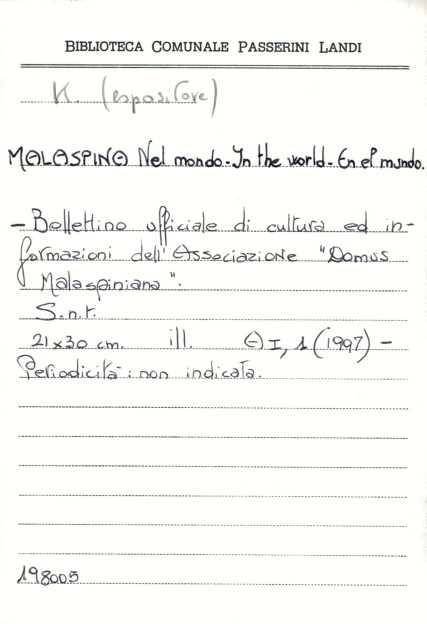 BIBLIOTECA COMUNALE PASSERINI LANDI
K. (espositore)
MALASPINA Nel mondo - In the world - En el mundo.
- Bollettino ufficiale di cultura ed in-
formazioni dell'Associazione "Domus
Malaspiniana".
S.n.t.
21x30 cm. ill. A I, 1 (1997) -
Periodicità: non indicata.
198005